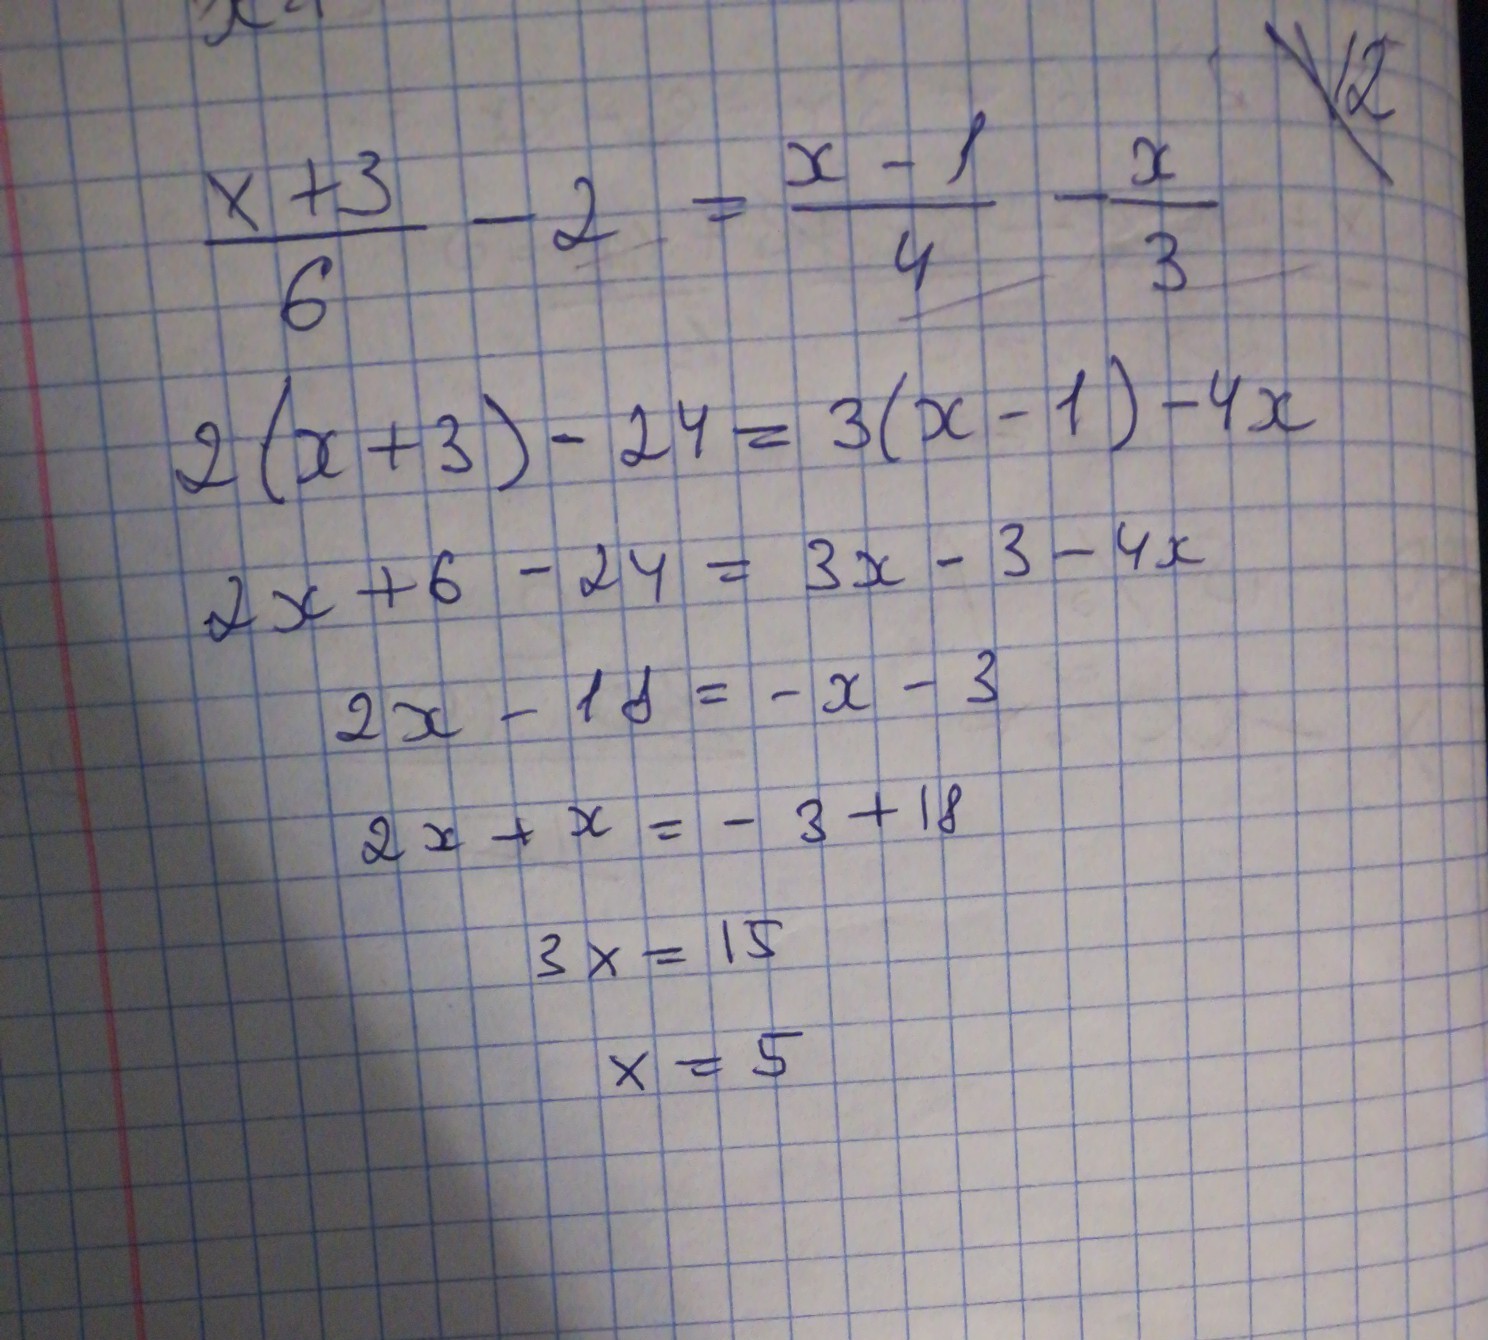 x + 3 / 6 - 2 = x - 1 / 4 - x / 3 \ 12
2(x + 3) - 24 = 3(x - 1) - 4x
2x + 6 - 24 = 3x - 3 - 4x
2x - 18 = - x - 3
2x + x = - 3 + 18
3x = 15
x = 5